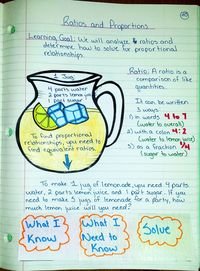 Ratios and Proportions
Learning Goal: We will analyze ratios and
determine how to solve for proportional
relationships.
1 Jug
4 parts water
2 parts lemon juice
1 part sugar
To find proportional
relationships, you need to
find equivalent ratios.
Ratio: A ratio is a
comparison of like
quantities.
It can be written
3 ways:
1) in words 4 to 7
(water to overall)
2) with a colon 4:2
(water to lemon juice)
3) as a fraction 1/4
(sugar to water)
To make 1 jug of lemonade, you need 4 parts
water, 2 parts lemon juice and 1 part sugar. If you
need to make 5 jugs of lemonade for a party, how
much lemon juice will you need?
What I
Know
What I
Need to
Know
Solve